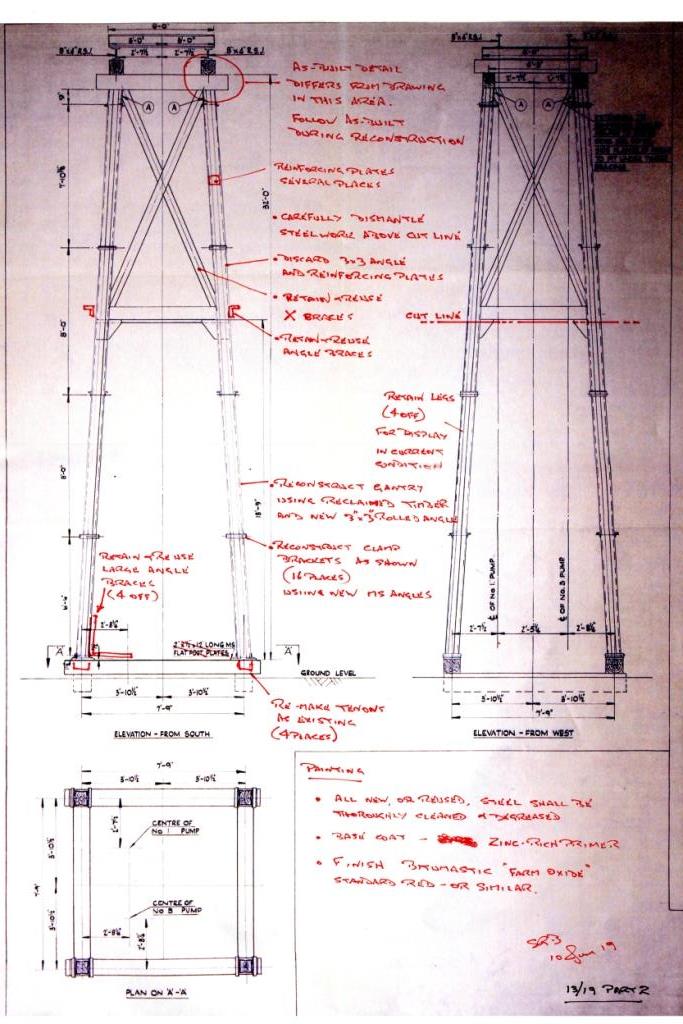 6'-0"
8"x6" R.S.J.
8"x6" R.S.J.
2'-7½
2'-7½
AS-BUILT DETAIL
DIFFERS FROM DRAWING
IN THIS AREA.
FOLLOW AS-BUILT
DURING RECONSTRUCTION
A
A
A
A
9"
7'-10½
32'-0"
REINFORCING PLATES
SEVERAL PLACES
• CAREFULLY DISMANTLE
STEELWORK ABOVE CUT LINE
• DISCARD 3x3 ANGLE
AND REINFORCING PLATES
• RETAIN & REUSE
X BRACES
CUT LINE
• RETAIN & REUSE
ANGLE BRACES
8'-0"
8'-0"
RETAIN LEGS
(4 OFF)
FOR DISPLAY
IN CURRENT
CONDITION
• RECONSTRUCT GANTRY
USING RECLAIMED TIMBER
AND NEW 3"x3" ROLLED ANGLE
• RECONSTRUCT CLAMP
BRACKETS AS SHOWN
(16 PLACES)
USING NEW MS ANGLES
RETAIN & REUSE
LARGE ANGLE
BRACKS
(4 OFF)
℄ OF No 1 PUMP
℄ OF No 3 PUMP
2'-8½
2'-7½
2'-5¾
2'-8½
2'2½x½ LONG MS
FLAT POST PLATES
'A'
'A'
GROUND LEVEL
3'-10½
3'-10½
7'-9"
3'-10½
3'-10½
7'-9"
RE-MAKE TENONS
AS EXISTING
(4 PLACES)
ELEVATION - FROM SOUTH
ELEVATION - FROM WEST
7'-9"
3'-10½
3'-10½
2'-7½
CENTRE OF
No 1 PUMP
3'-10½
7'-9"
3'-10½
CENTRE OF
No 3 PUMP
2'-8½
2'-8½
PLAN ON 'A'-'A'
PAINTING
• ALL NEW, OR REUSED, STEEL SHALL BE
THOROUGHLY CLEANED & DEGREASED
• BASE COAT - ZINC-RICH PRIMER
• FINISH BITUMASTIC "FARM OXIDE"
STANDARD RED - OR SIMILAR.
10 Jun 19
13/19 PART 2